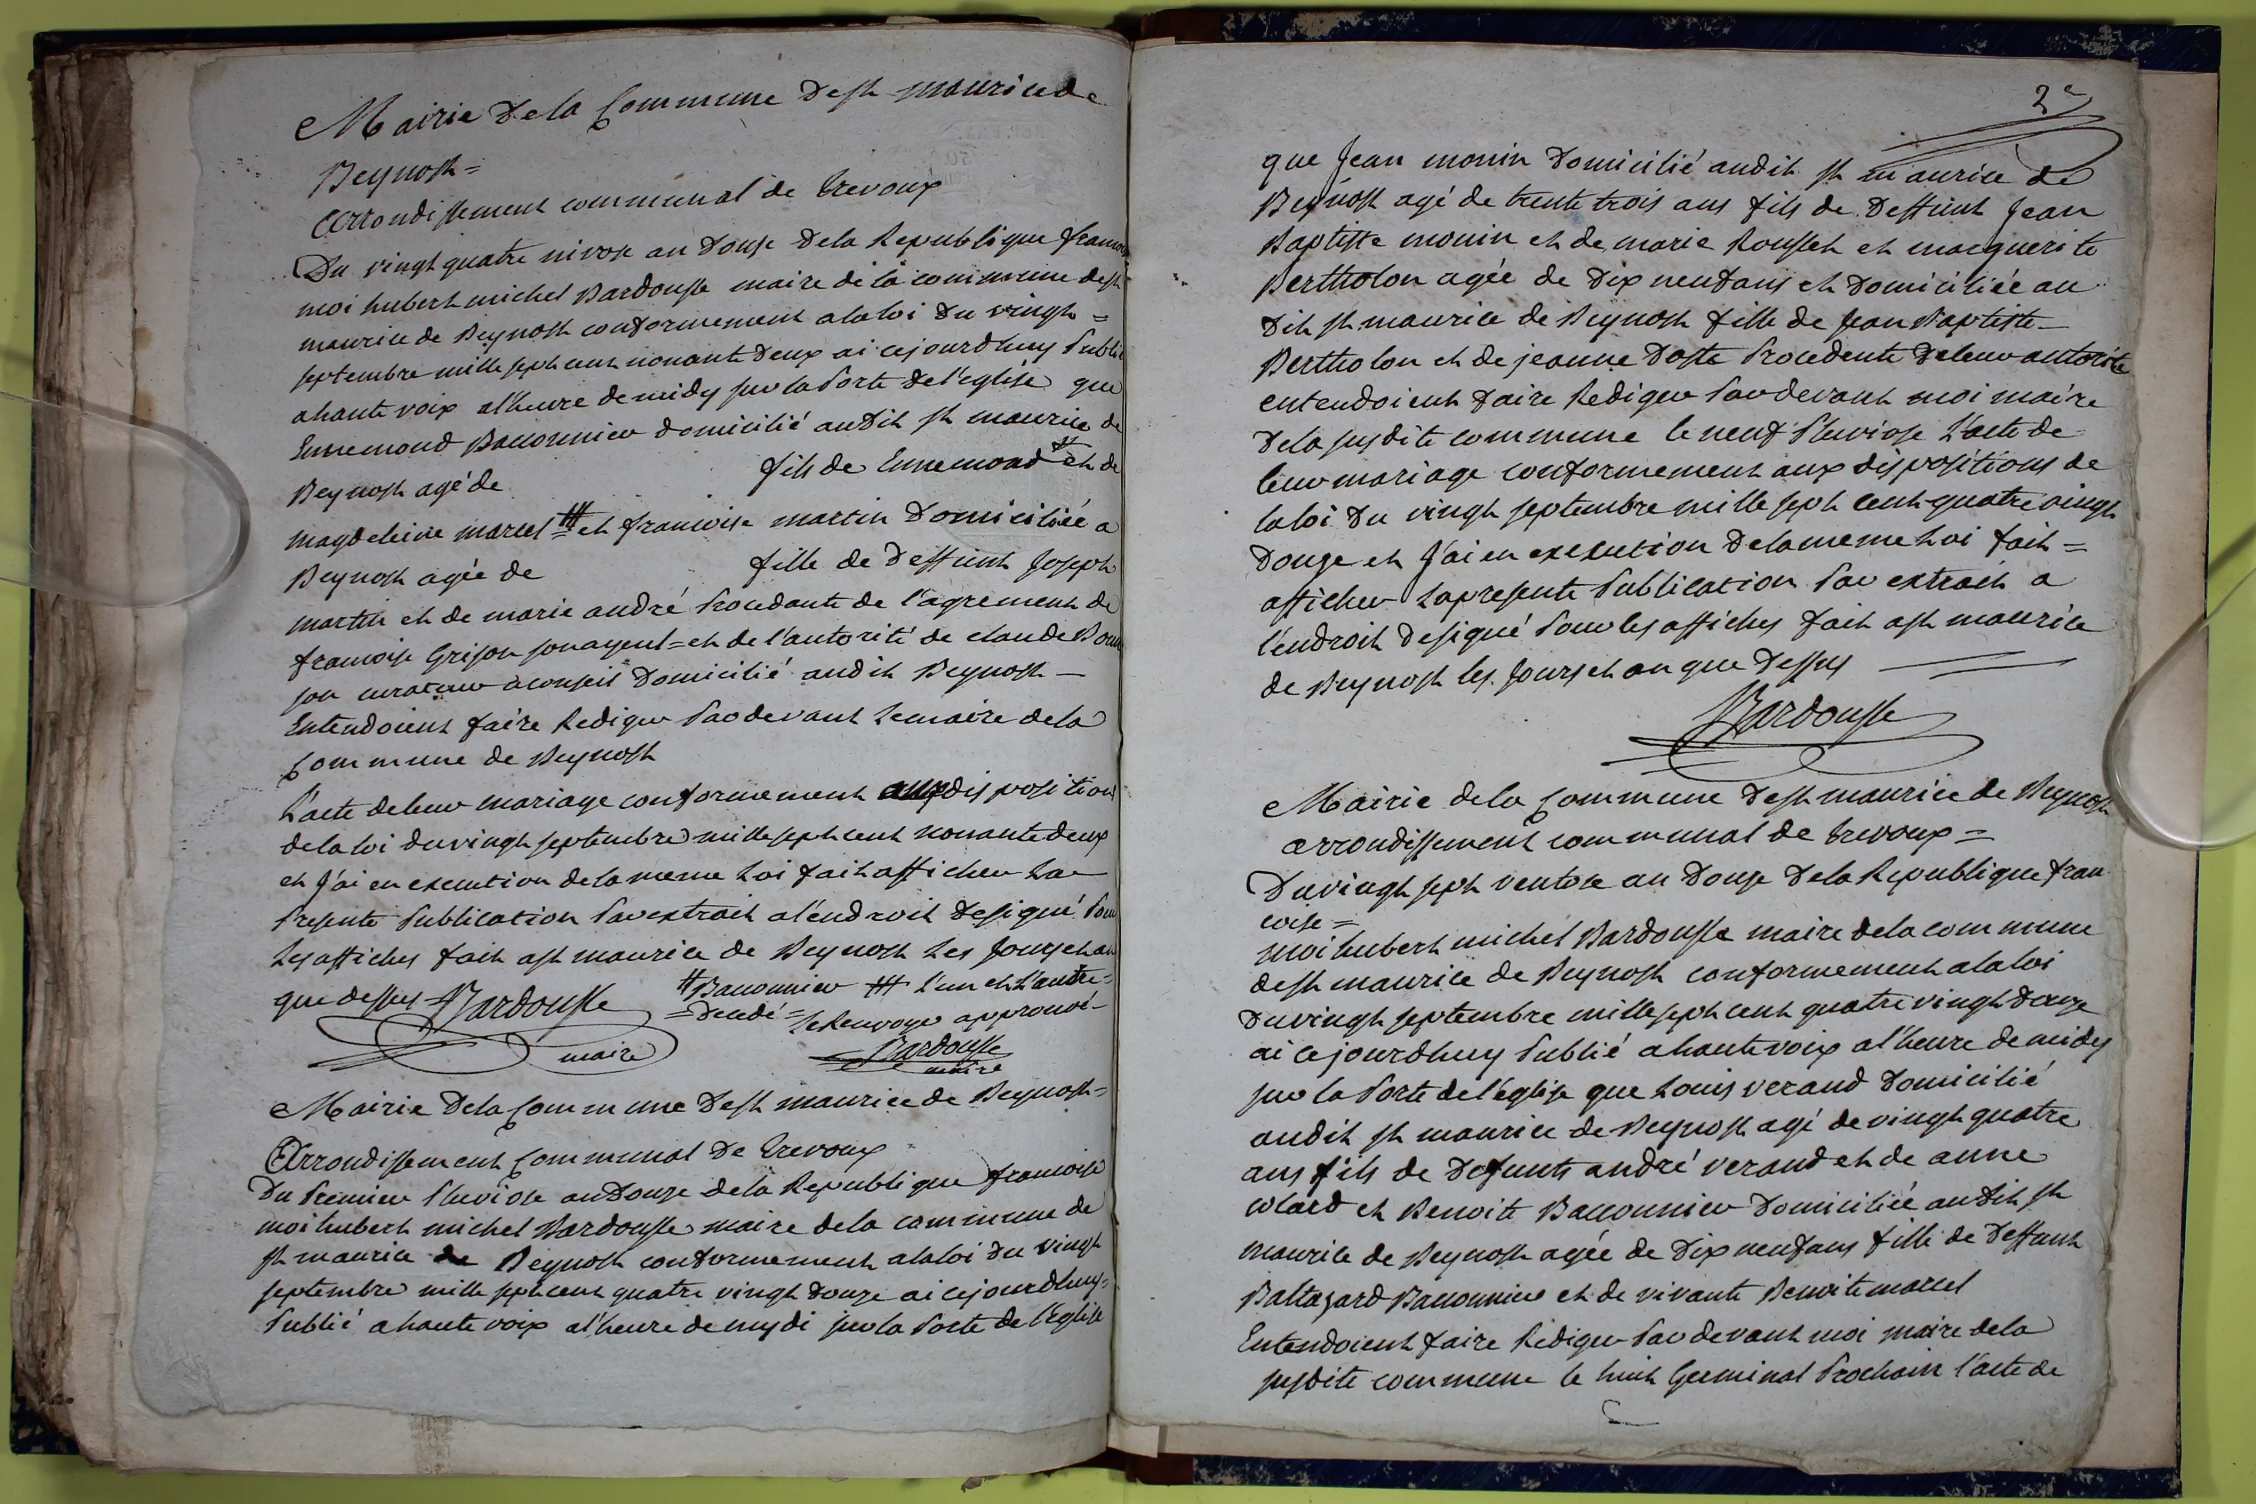 Mairie de la Commune de st maurice de
Beynost =
Arrondissement communal de trevoux
Du vingt quatre nivose an douze de la Republique francoise
moi hubert michel Bardousse maire de la commune de st
maurice de Beynost conformement a la loi du vingt =
septembre mille sept cent nonante deux ai cejourdhuy publié
a haute voix a l'heure de midy sur la porte de l'eglise que
Ennemond Bacconnier domicilié audit st maurice de
Beynost agé de fils de Ennemond # et de
magdeleine marcel ### et francoise martin domiciliée a
Beynost agée de fille de deffunt Joseph
martin et de marie andré procedante de l'agrement de
francoise Grison son ayeul = et de l'autorité de claude
son curateur a conseil domicilié audit Beynost —
Entendoient faire Rediger par devant le maire de la
Commune de Beynost
l'acte de leur mariage conformement aux dispositions
de la loi du vingt septembre mille sept cent nonante deux
et j'ai en execution de la meme Loi fait afficher La
presente publication par extrait a l'endroit desigué pour
Les affiches fait a st maurice de Beynost Les jours et an
que dessus Bardousse # Bacconnier ### l'un et L'autre =
= Decedé = le Renvoye approuvé -
maire Bardousse
maire
Mairie de la Commune de st maurice de Beynost =
Arrondissement Communal de trevoux
Du premier pluviose an douze de la Republique francoise
moi hubert michel Bardousse maire de la commune de
st maurice de Beynost conformement a la loi du vingt
septembre mille sept cent quatre vingt douze ai cejourdhuy =
publié a haute voix a l'heure de mydi sur la porte de l'église
2e
que Jean monin domicilié audit st maurice de
Beynost agé de trente trois ans fils de deffunt Jean
Baptiste monin et de marie Rousset et marguerite
Bertholon agée de dix neuf ans et domiciliée au
dit st maurice de Beynost fille de Jean Baptiste —
Bertholon et de jeanne Doste procedente de leur autorité
entendoient faire Rediger par devant moi maire
de la susdite commune le neuf pluviose L'acte de
leur mariage conformement aux dispositions de
la loi du vingt septembre mille sept cent quatre vingt
douze et j'ai en execution de la meme Loi fait =
afficher La presente publication par extrait a
l'endroit desigué pour les affiches fait a st maurice
de Beynost les jours et an que dessus
Bardousse
Mairie de la Commune de st maurice de Beynost
arrondissement communal de trevoux =
Du vingt sept ventose an douze de la Republique fran
coise =
moi hubert michel Bardousse maire de la commune
de st maurice de Beynost conformement a la loi
du vingt septembre mille sept cent quatre vingt douze
ai cejourdhuy publié a haute voix a l'heure de midy
sur la porte de l'église que Louis verand domicilié
audit st maurice de Beynost agé de vingt quatre
ans fils de defunts andré verand et de anne
colard et Benoite Bacconnier domiciliée audit st
maurice de Beynost agée de dix neuf ans fille de deffunt
Baltazard Bacconnier et de vivante Benoite marcel
Entendoient faire Rediger par devant moi maire de la
susdite commune le huit Germinal prochain l'acte de